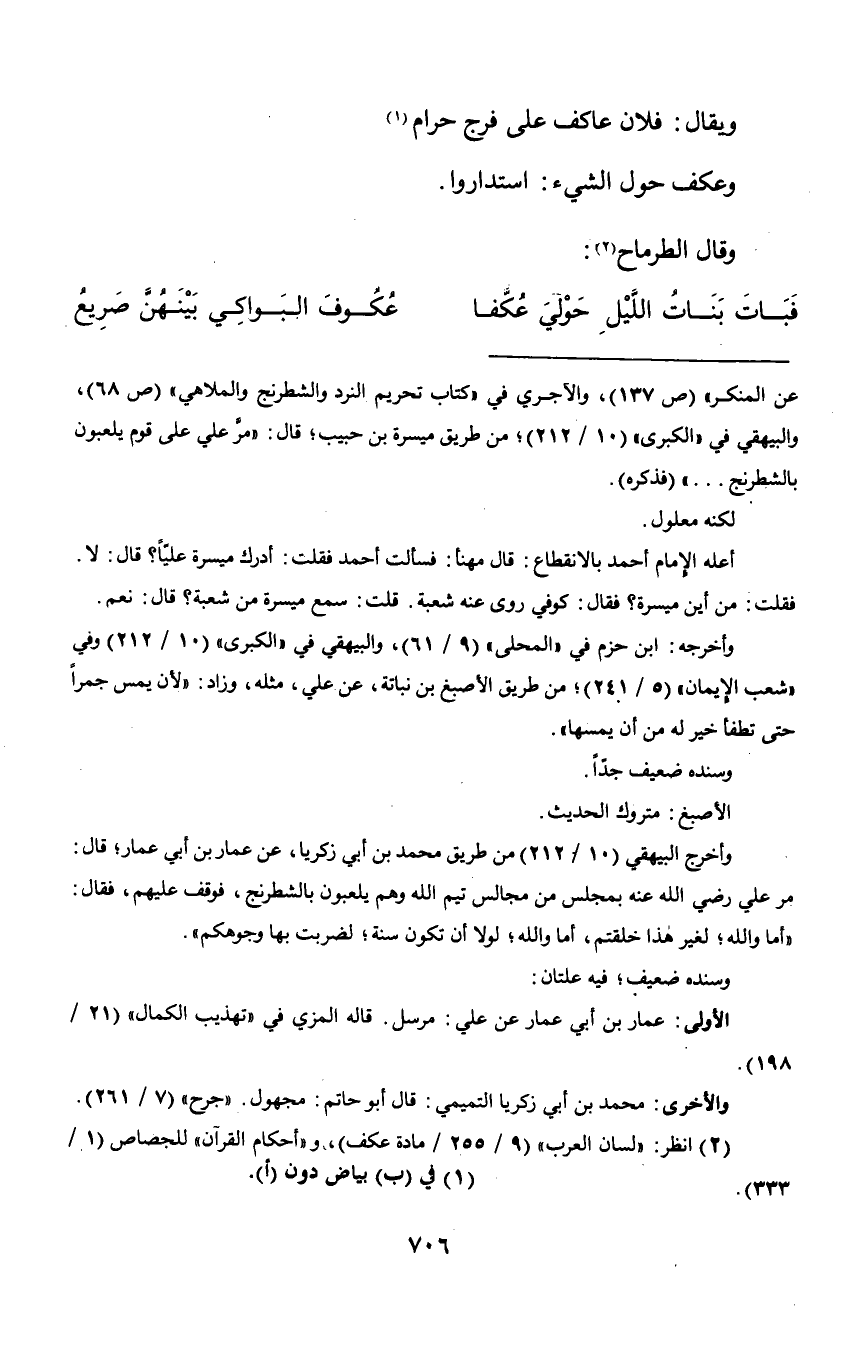 ويقال: فلان عاكف على فرج حرام(١)
وعكف حول الشيء: استداروا.
وقال الطرماح(٢):
فَبَــاتَ بَنَــاتُ اللَّيْلِ حَوْلِيَ عُكَّفــا عُكُــوفَ الـبَــواكِـي بَيْنَـهُنَّ صَرِيعُ
عن المنكـر» (ص ١٣٧)، والآجـري في «كتاب تحريم النرد والشطرنج والملاهي» (ص ٦٨)،
والبيهقي في «الكبرى» (١٠ / ٢١٢)؛ من طريق ميسرة بن حبيب؛ قال: «مرَّ علي على قوم يلعبون
بالشطرنج . . .» (فذكره).
لكنه معلول.
أعله الإمام أحمد بالانقطاع: قال مهنأ: فسألت أحمد فقلت: أدرك ميسرة عليّاً؟ قال: لا.
فقلت: من أين ميسرة؟ فقال: كوفي روى عنه شعبة. قلت: سمع ميسرة من شعبة؟ قال: نعم.
وأخرجه: ابن حزم في «المحلى» (٩ / ٦١)، والبيهقي في «الكبرى» (١٠ / ٢١٢) وفي
«شعب الإيمان» (٥ / ٢٤١)؛ من طريق الأصبغ بن نباتة، عن علي، مثله، وزاد: «لأن يمس جمراً
حتى تطفأ خير له من أن يمسها».
وسنده ضعيف جدّاً.
الأصبغ: متروك الحديث.
وأخرج البيهقي (١٠ / ٢١٢) من طريق محمد بن أبي زكريا، عن عمار بن أبي عمار؛ قال:
مر علي رضي الله عنه بمجلس من مجالس تيم الله وهم يلعبون بالشطرنج، فوقف عليهم، فقال:
«أما والله؛ لغير هٰذا خلقتم، أما والله؛ لولا أن تكون سنة؛ لضربت بها وجوهكم».
وسنده ضعيف؛ فيه علتان:
الأولى: عمار بن أبي عمار عن علي: مرسل. قاله المزي في «تهذيب الكمال» (٢١ /
١٩٨).
والأخرى: محمد بن أبي زكريا التميمي: قال أبو حاتم: مجهول. «جرح» (٧ / ٢٦١).
(٢) انظر: «لسان العرب» (٩ / ٢٥٥ / مادة عكف)، و«أحكام القرآن» للجصاص (١ /
٣٣٣).
(١) في (ب) بياض دون (أ).
٧٠٦